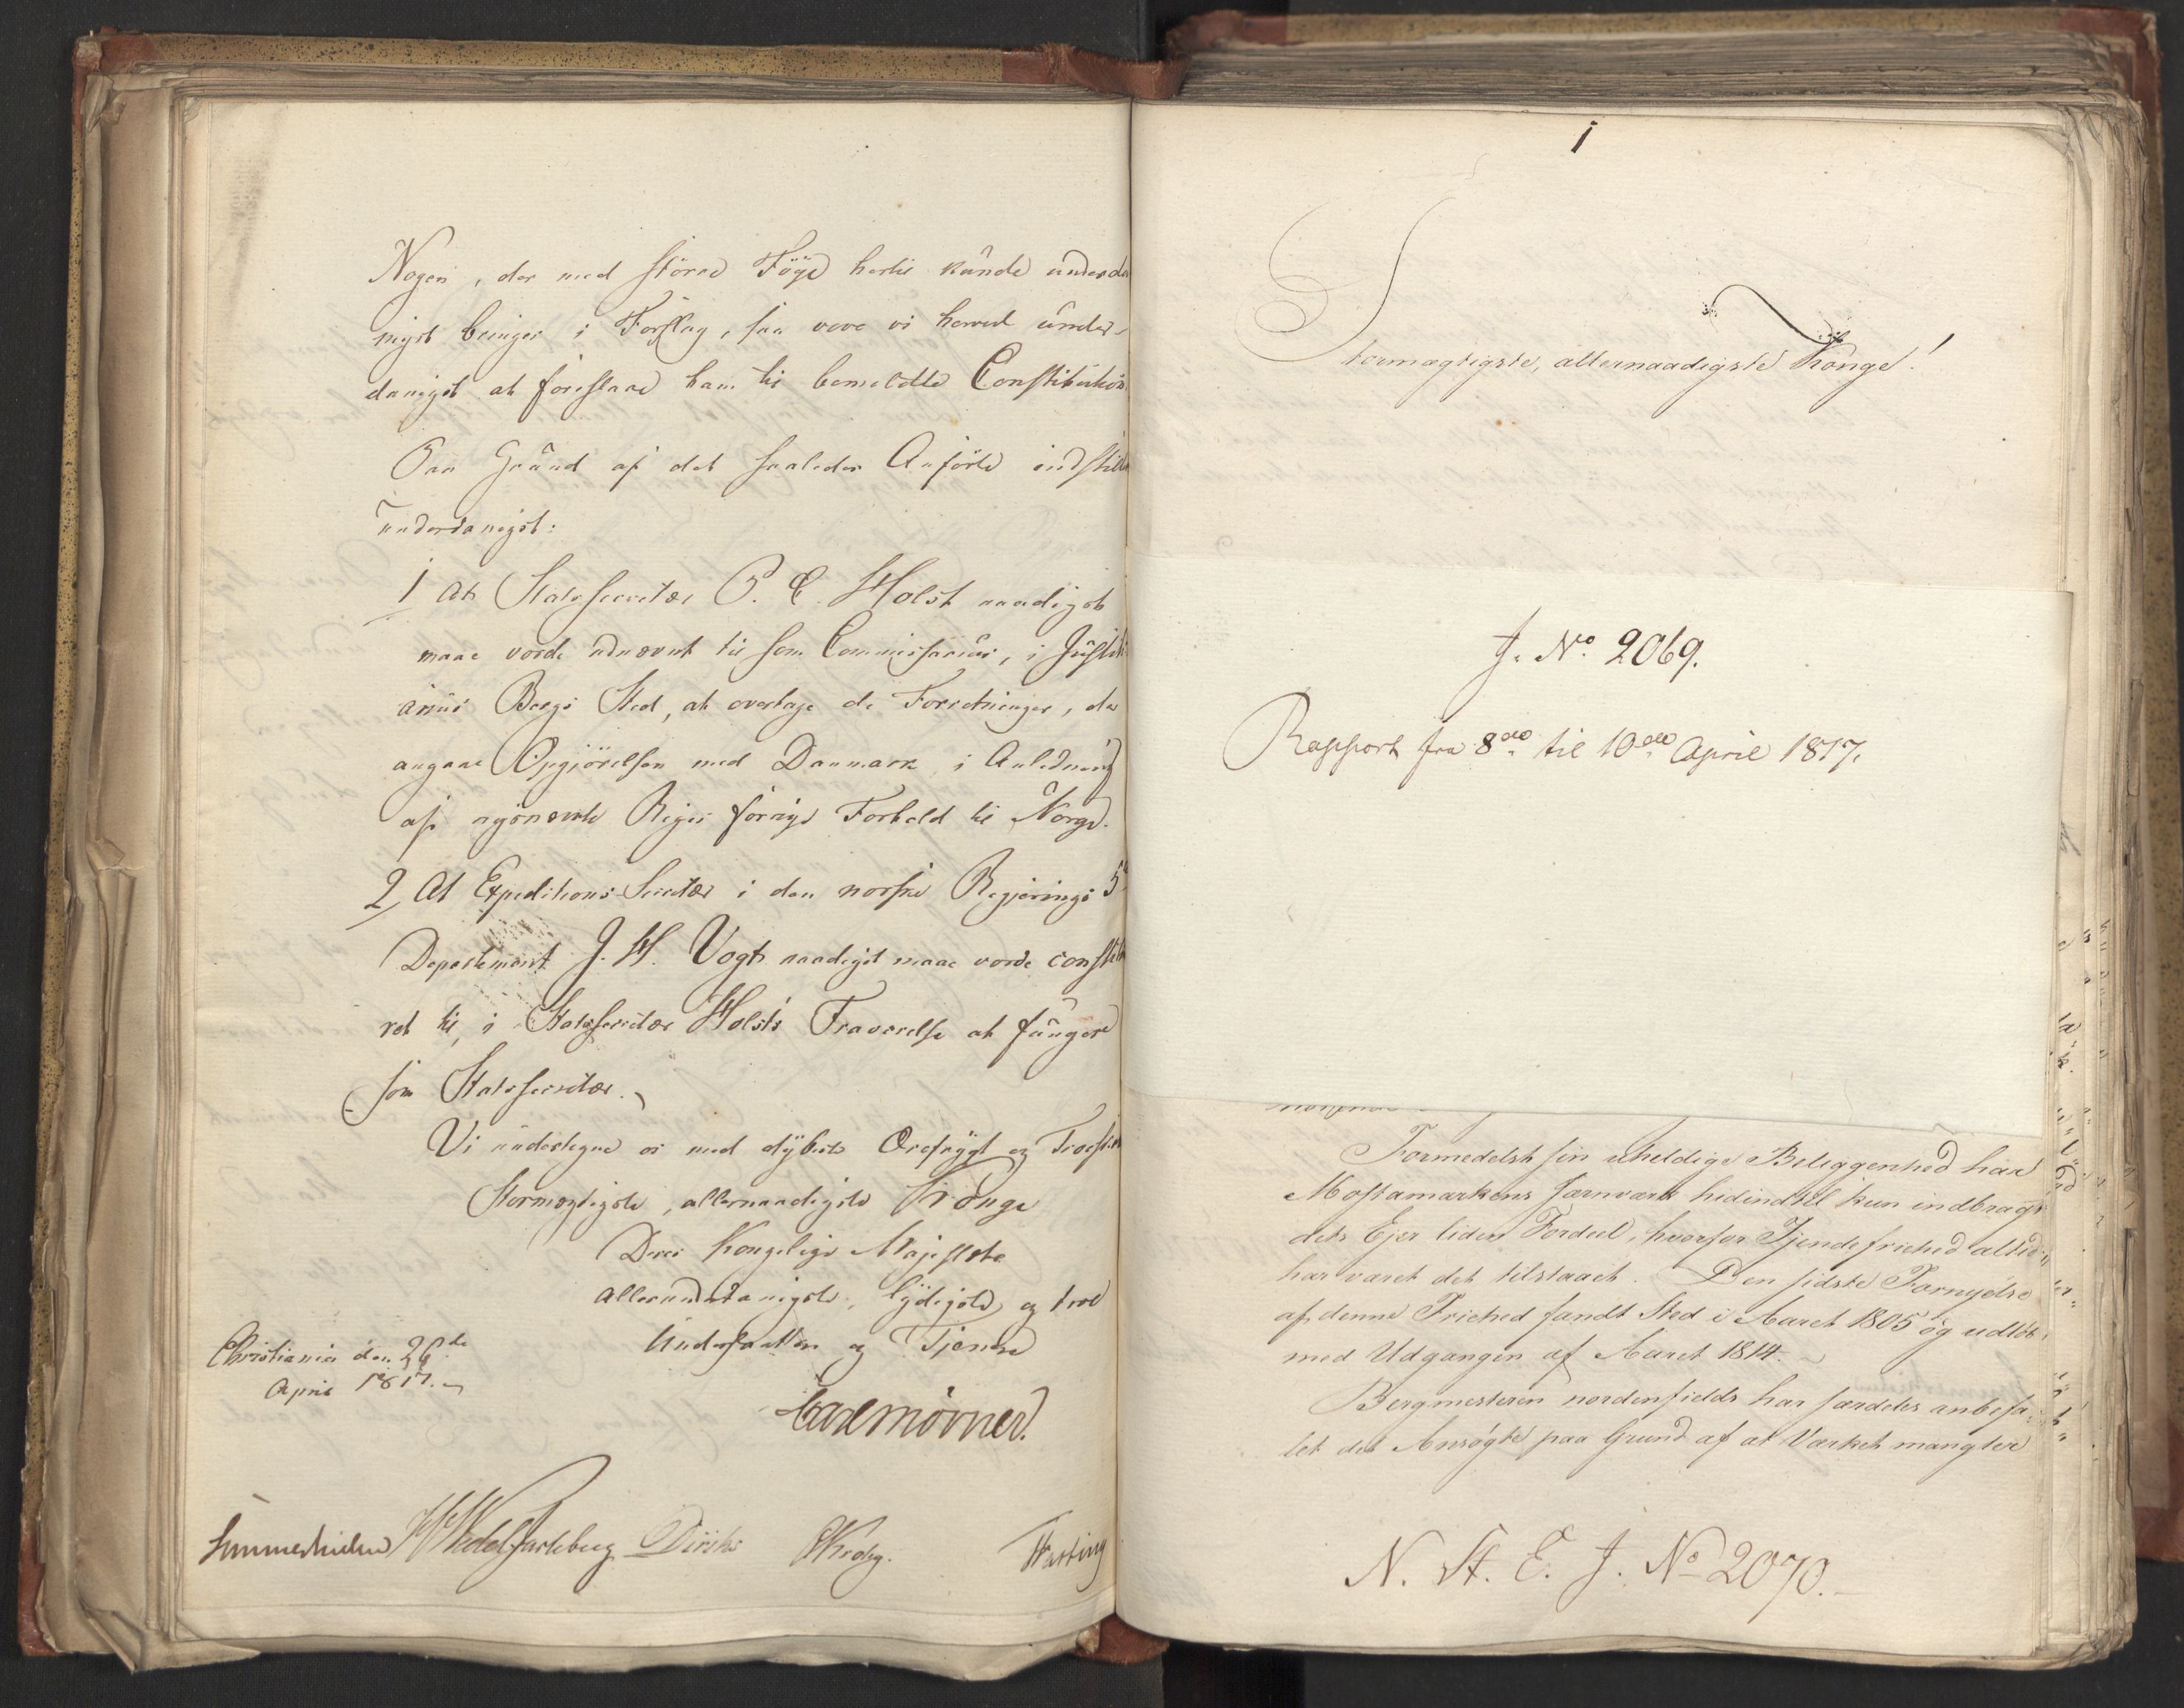 Nogen, der med større Föye hertil kunde underda
nigst bringes i Forslag, saa vove vi herved under-
danigst at foreslaae ham til bemeldte Constitution
Paa Grund af det saaledes Anførte indstilles
underdanigst:
1 At Statssecretær P. C. Holst naadigst
maae vorde udnævnt til som Commissarius, i Justiti
arius Bergs Sted, at overtage de Forretninger, der
angaae Opgjörelsen med Danmark i Anledning
af nysnævnte Riges forrige Forhold til Norge.
2, At Expeditions-Secretær i den norske Regjerings 5te
Departement J. H. Vogt naadigst maae vorde constitue
ret til, i Statssecretær Holsts Fraværelse at fungere
som Statssecretær.
Vi undertegne os med dybeste Ærefrygt og Troeskab
Stormægtigste, allernaadigste Konge
Deres Kongelige Majestæts
allerunderdanigste, lydigste og troe
Undersaatter og Tjenere
Christiania den 26de
April 1817.
Carl Mörner.
Sommerhielm HWedel Jarlsberg Diriks CKrohg. Fasting
1
Stormægtigste, allernaadigste Konge!
J. No. 2069.
Rapport fra 8de til 10de April 1817.
Formedelst sin uheldige Beliggenhed har
Mostamarkens Jærnværk hidindtil kun indbragt
dets Ejer liden Fordeel, hvorfor Tjendefriehed altid
har været det tilstaaet. Den sidste Fornyelse
af denne Friehed fandt Sted i Aaret 1805 og udløb
med Udgangen af Aaret 1814.
Bergmesteren nordenfields har særdeles anbefa-
let det Ansøgte paa Grund af at Værket mangler
N. St. E. J. No 2070.